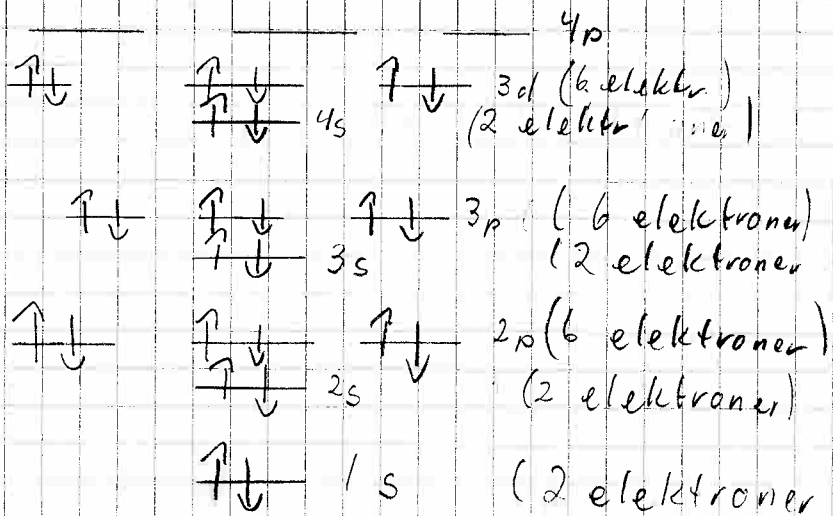 4p
3d (6 elektr.)
4s (2 elektr ner)
3p (6 elektroner)
3s (2 elektroner
2p (6 elektroner)
2s (2 elektroner)
1s (2 elektroner